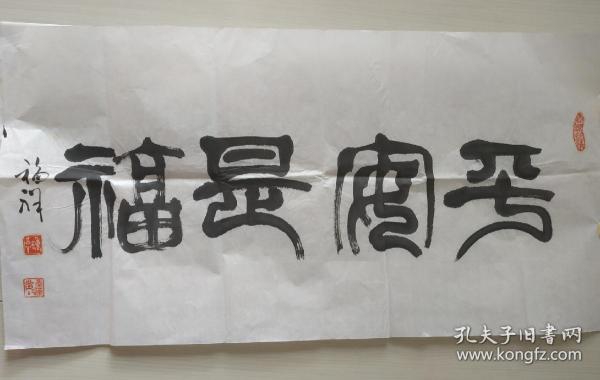 平安是福
福祥
孔夫子旧书网
www.kongfz.com